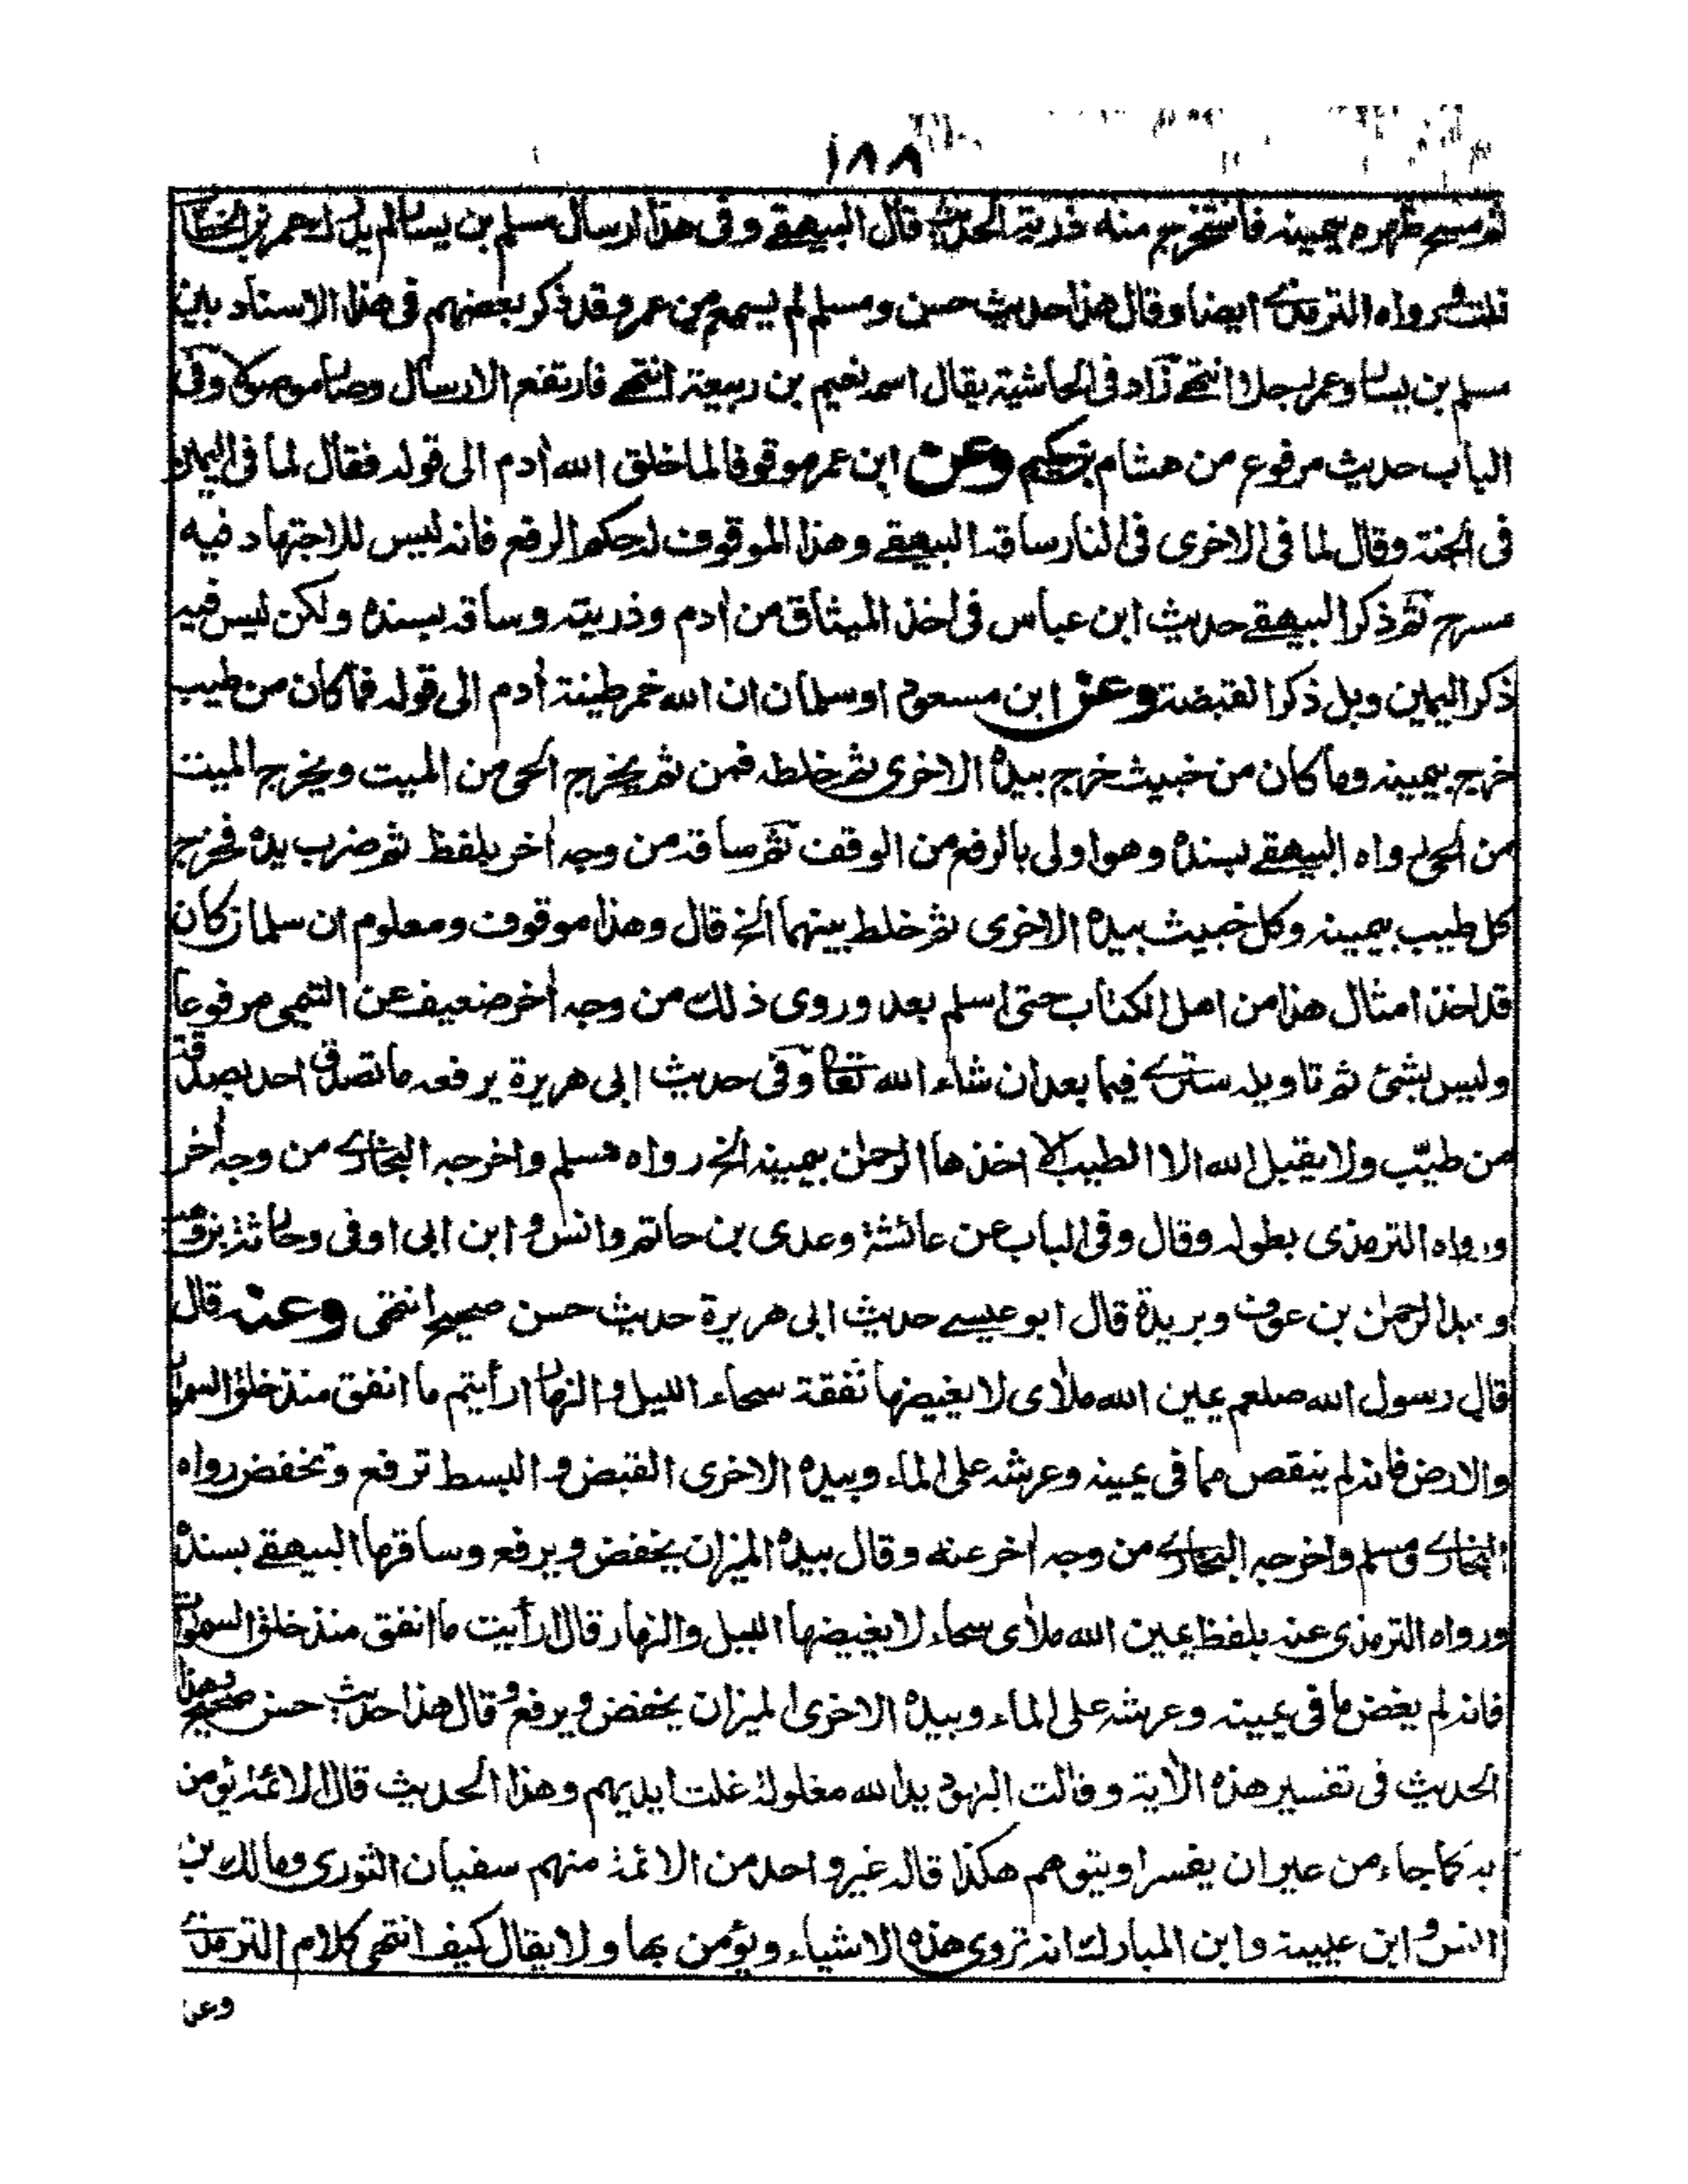 ١٨٨
ثم مسح ظهره بيمينه فاستخرج منه ذرية الحديث قال البيهقے وفى هذا ارسال مسلم بن يسار لم يدرك عمر بن الخطاب
قلت ورواه الترمذے ايضا وقال هذا حديث حسن ومسلم لم يسمع من عمر وقد ذكر بعضهم فى هذا الاسناد بين
مسلم بن يسار وعمر رجلا انتهے زاد فى الحاشية يقال اسمه نعيم بن ربيعة انتهے فارتفع الارسال وصار موصولا وفى
الباب حديث مرفوع من هشام بن حكيم وعن ابن عمر موقوفا لما خلق الله أدم الى قوله فقال لما فى اليمين
فى الجنة وقال لما فى الاخرى فى النار ساقه البيهقے وهذا الموقوف له حكم الرفع فانه ليس للاجتهاد فيه
مسرح ثم ذكر البيهقے حديث ابن عباس فى اخذ الميثاق من أدم وذريته وساقه بسنده ولكن ليس فيه
ذكر اليمين وبل ذكر القبضة وعن ابن مسعود او سلمان ان الله خمر طينة أدم الى قوله فما كان من طيب
خرج بيمينه وما كان من خبيث خرج بيده الاخرى ثم خلطه فمن ثم يخرج الحى من الميت ويخرج الميت
من الحى رواه البيهقے بسنده وهو اولى بالرفع من الوقف ثم ساقه من وجه أخر بلفظ ثم ضرب يده فخرج
كل طيب بيمينه وكل خبيث بيده الاخرى ثم خلط بينهما الخ قال وهذا موقوف ومعلوم ان سلمان كان
قد اخذ امثال هذا من اهل الكتاب حتى اسلم بعد وروى ذلك من وجه أخر ضعيف عن التيمى مرفوعا
وليس بشئ ثم تاويله سترے فيما بعد ان شاء الله تعالى وفى حديث ابى هريرة يرفعه ما تصدق احد بصدقة
من طيّب ولا يقبل الله الا الطيب الا اخذها الرحمن بيمينه الخ رواه مسلم واخرجه البخارے من وجه أخر
ورواه الترمذى بطوله وقال وفى الباب عن عائشة وعدى بن حاتم وانس و ابن ابى اوفى وحارثة بن وهب
وعبد الرحمن بن عوف وبريدة قال ابو عيسے حديث ابى هريرة حديث حسن صحيح انتهى وعنه قال
قال رسول الله صلعم يمين الله ملأى لا يغيضها نفقة سحاء الليل والنهار ارأيتم ما انفق منذ خلق السموات
والارض فانه لم ينقص مما فى يمينه وعرشه على الماء وبيده الاخرى القبض و البسط ترفع وتخفض رواه
البخارے ومسلم واخرجه البخارے من وجه اخر عنه وقال بيده الميزان يخفض ويرفع وساقها البيهقے بسنده
ورواه الترمذى عنه بلفظ يمين الله ملأى سحاء لا يغيضها الليل والنهار قال ارأيت ما انفق منذ خلق السموات
فانه لم يغض ما فى يمينه وعرشه على الماء وبيده الاخرى الميزان يخفض ويرفع وقال هذا حديث حسن صحيح وهذا
الحديث فى تفسير هذه الأية وقالت اليهود يد الله مغلولة غلت ايديهم وهذا الحديث قال الائمة يؤمن
به كما جاء من غير ان يفسر او يتوهم هكذا قاله غير واحد من الائمة منهم سفيان الثورى ومالك بن
انس و ابن عيينة وابن المبارك انه تروى هذه الاشياء ويؤمن بها ولا يقال كيف انتهى كلام الترمذے
وعن